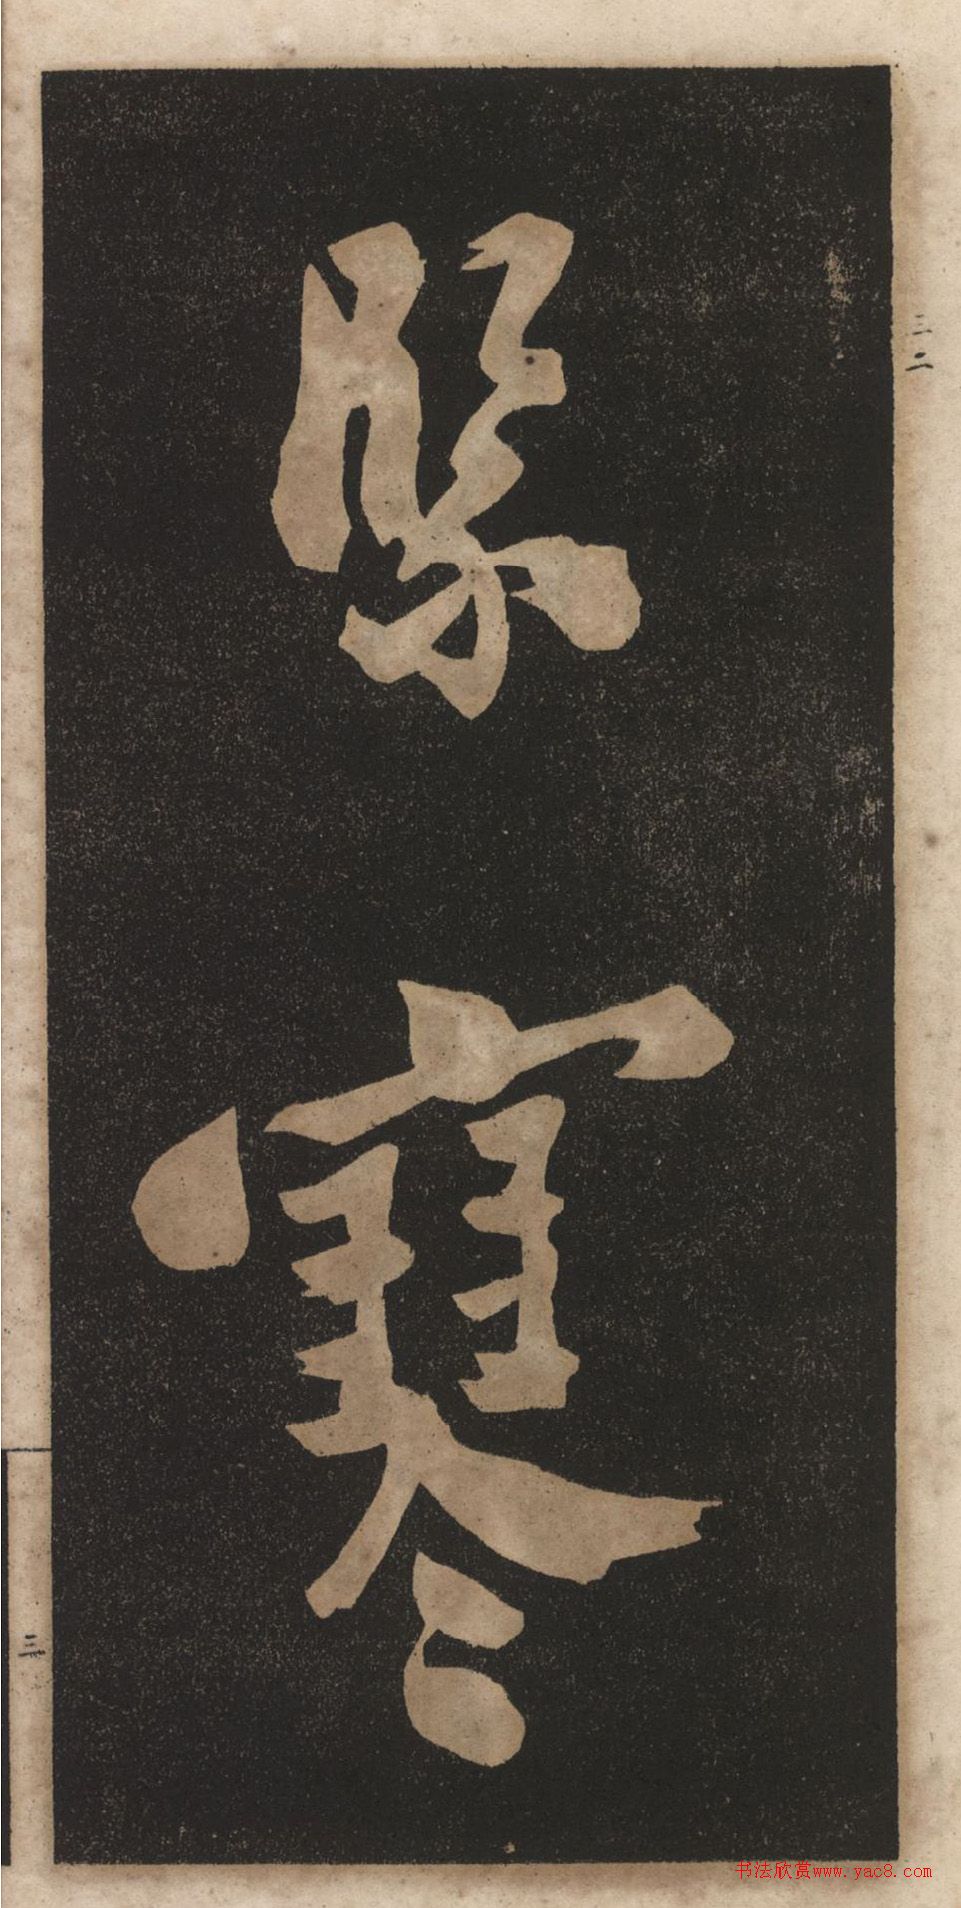 緊寒
三二
三
书法欣赏www.yac8.com